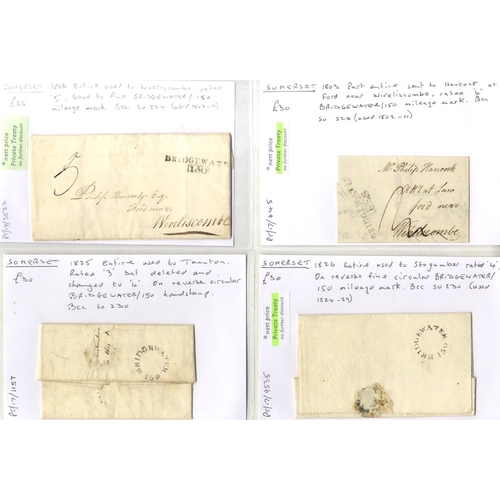 SOMERSET 1806 Entire used to Wiveliscombe rated
£35 '5'. Good to fine BRIDGEWATER/150
mileage mark. Bcc SO 226
* nett price
Private Treaty
no further discount
BRIDGEWATER
Philip Hancock Esq.
Ford near
Wiveliscombe
SOMERSET 1803 Part entire sent to Hancock at
£30 Ford near Wiveliscombe, rated
BRIDGEWATER/150 mileage mark. Bcc
SO 226 (used 1802-11)
* nett price
Private Treaty
no further discount
Mr. Philip Hancock
at Law
ford near
Wiveliscombe
PF/17/645
SOMERSET 1825 Entire used to Taunton.
£30 Rated '3' but deleted and
changed to '4'. On reverse circular
BRIDGEWATER/150 handstamp.
Bcc SO 230
BRIDGEWATER
150
PF/17/1157
SOMERSET 1826 Entire used to Stogumber rated '4'
£30 On reverse fine circular BRIDGEWATER/
150 mileage mark. Bcc SO 230 (used
1824-29)
* nett price
Private Treaty
no further discount
BRIDGEWATER 150
PF/17/9535